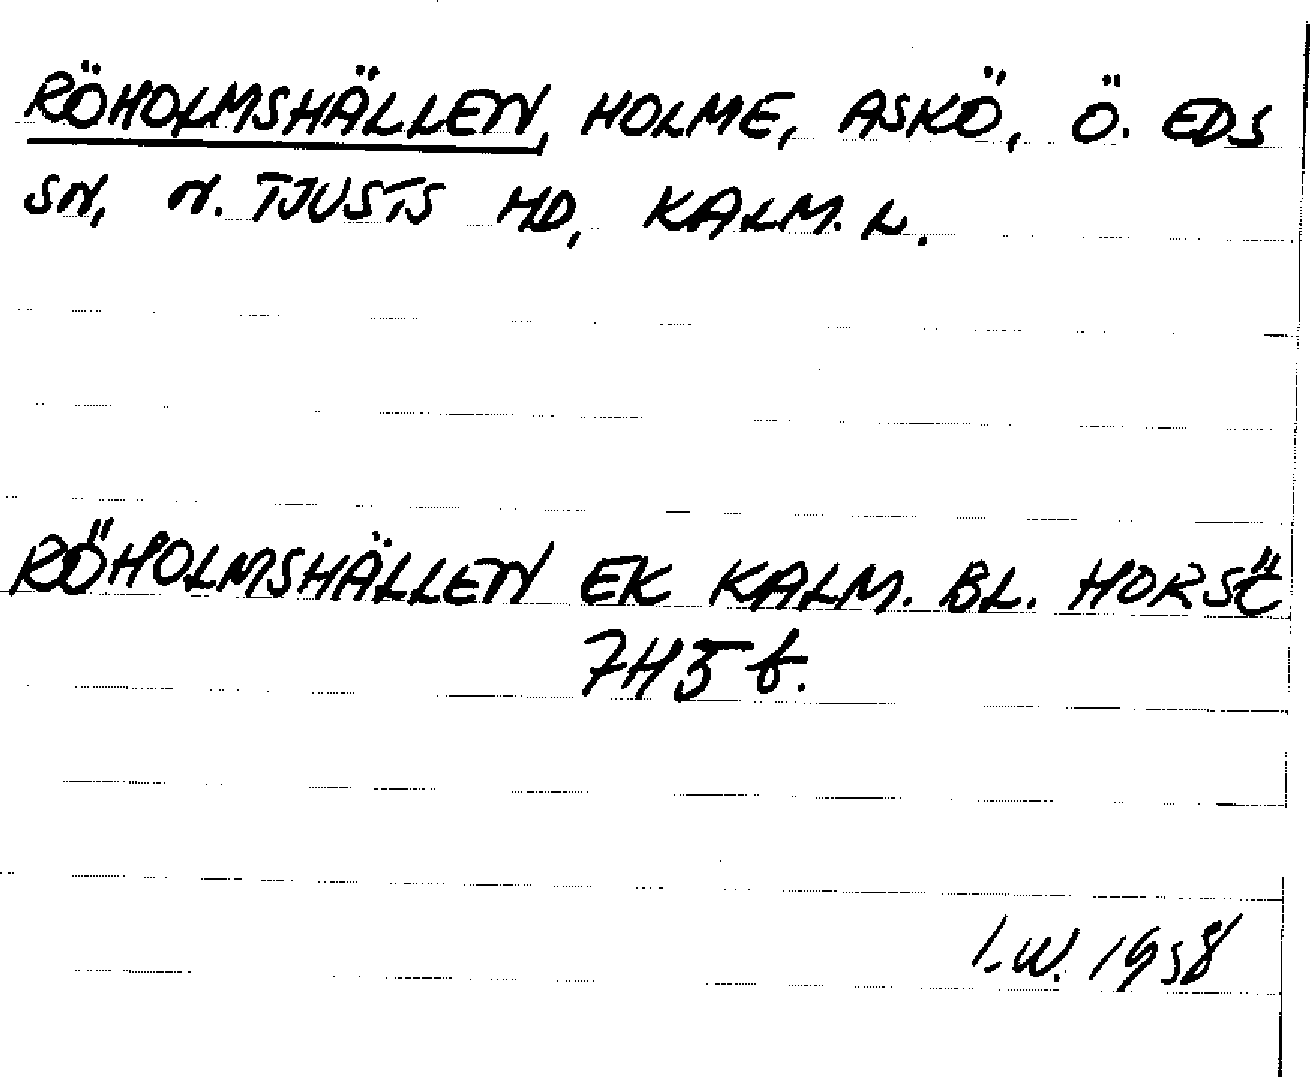 RÖHOLMSHÄLLEN, HOLME, ASKÖ, Ö. EDS
SN, N. TJUSTS HD, KALM. L.
RÖHOLMSHÄLLEN EK KALM. BL. HORSÖ
7H5f.
I.W. 1958